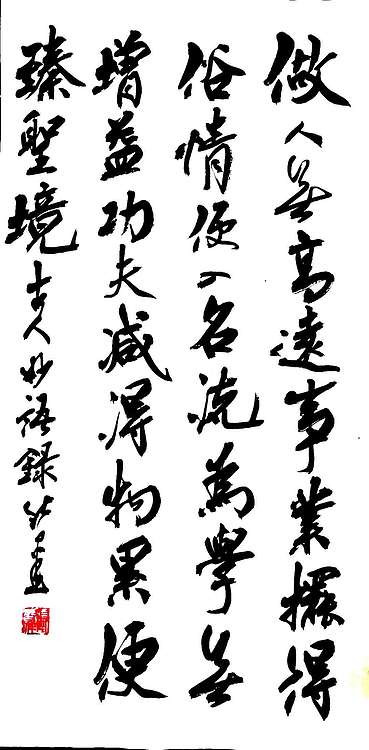 做人無高遠事業擺得
俗情便入名流為學無
增益功夫減得物累便
臻聖境古人妙語錄